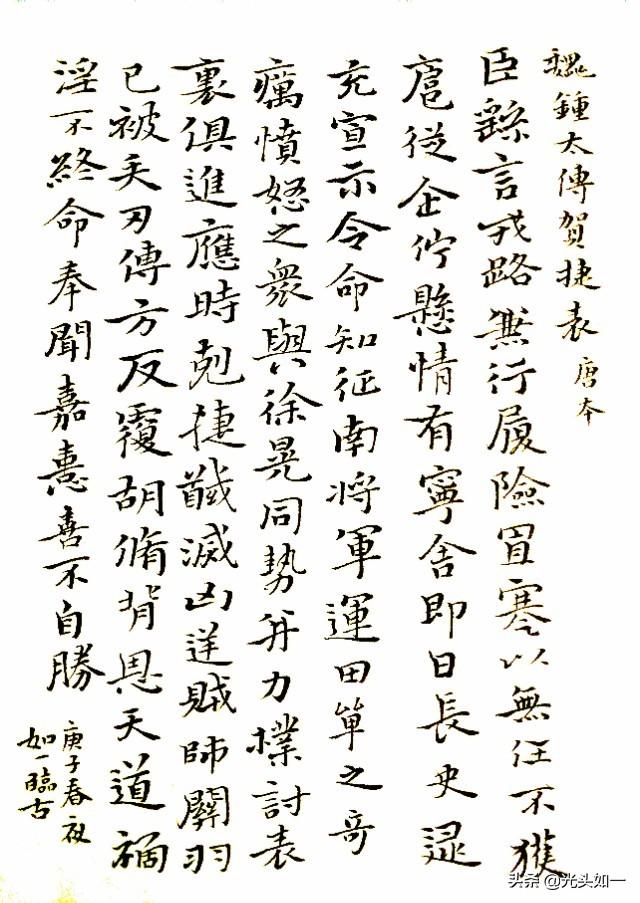 魏鍾太傅賀捷表 唐本
臣繇言戎路兼行履險冒寒以無任不獲
扈從企佇懸情有寧舍即日長史逯
充宣示令命知征南將軍運田單之奇
厲憤怒之衆與徐晃同勢并力撲討表
裏俱進應時剋捷馘滅凶逆賊帥關羽
已被矢刃傅方反覆胡脩背恩天道禍
淫不終命奉聞嘉憙喜不自勝
庚子春夜
如一臨古
头条 @光头如一